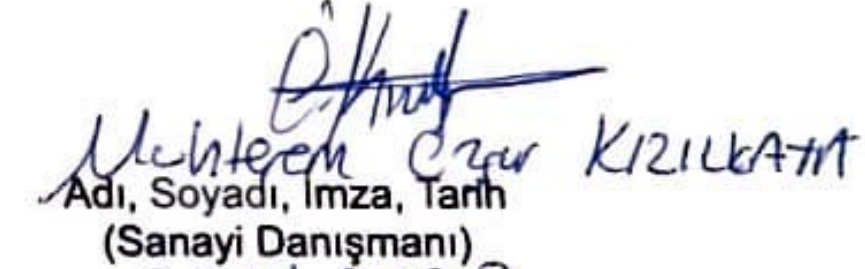 Muhterem Özgür KIZILKAYA
Adı, Soyadı, İmza, Tarih
(Sanayi Danışmanı)